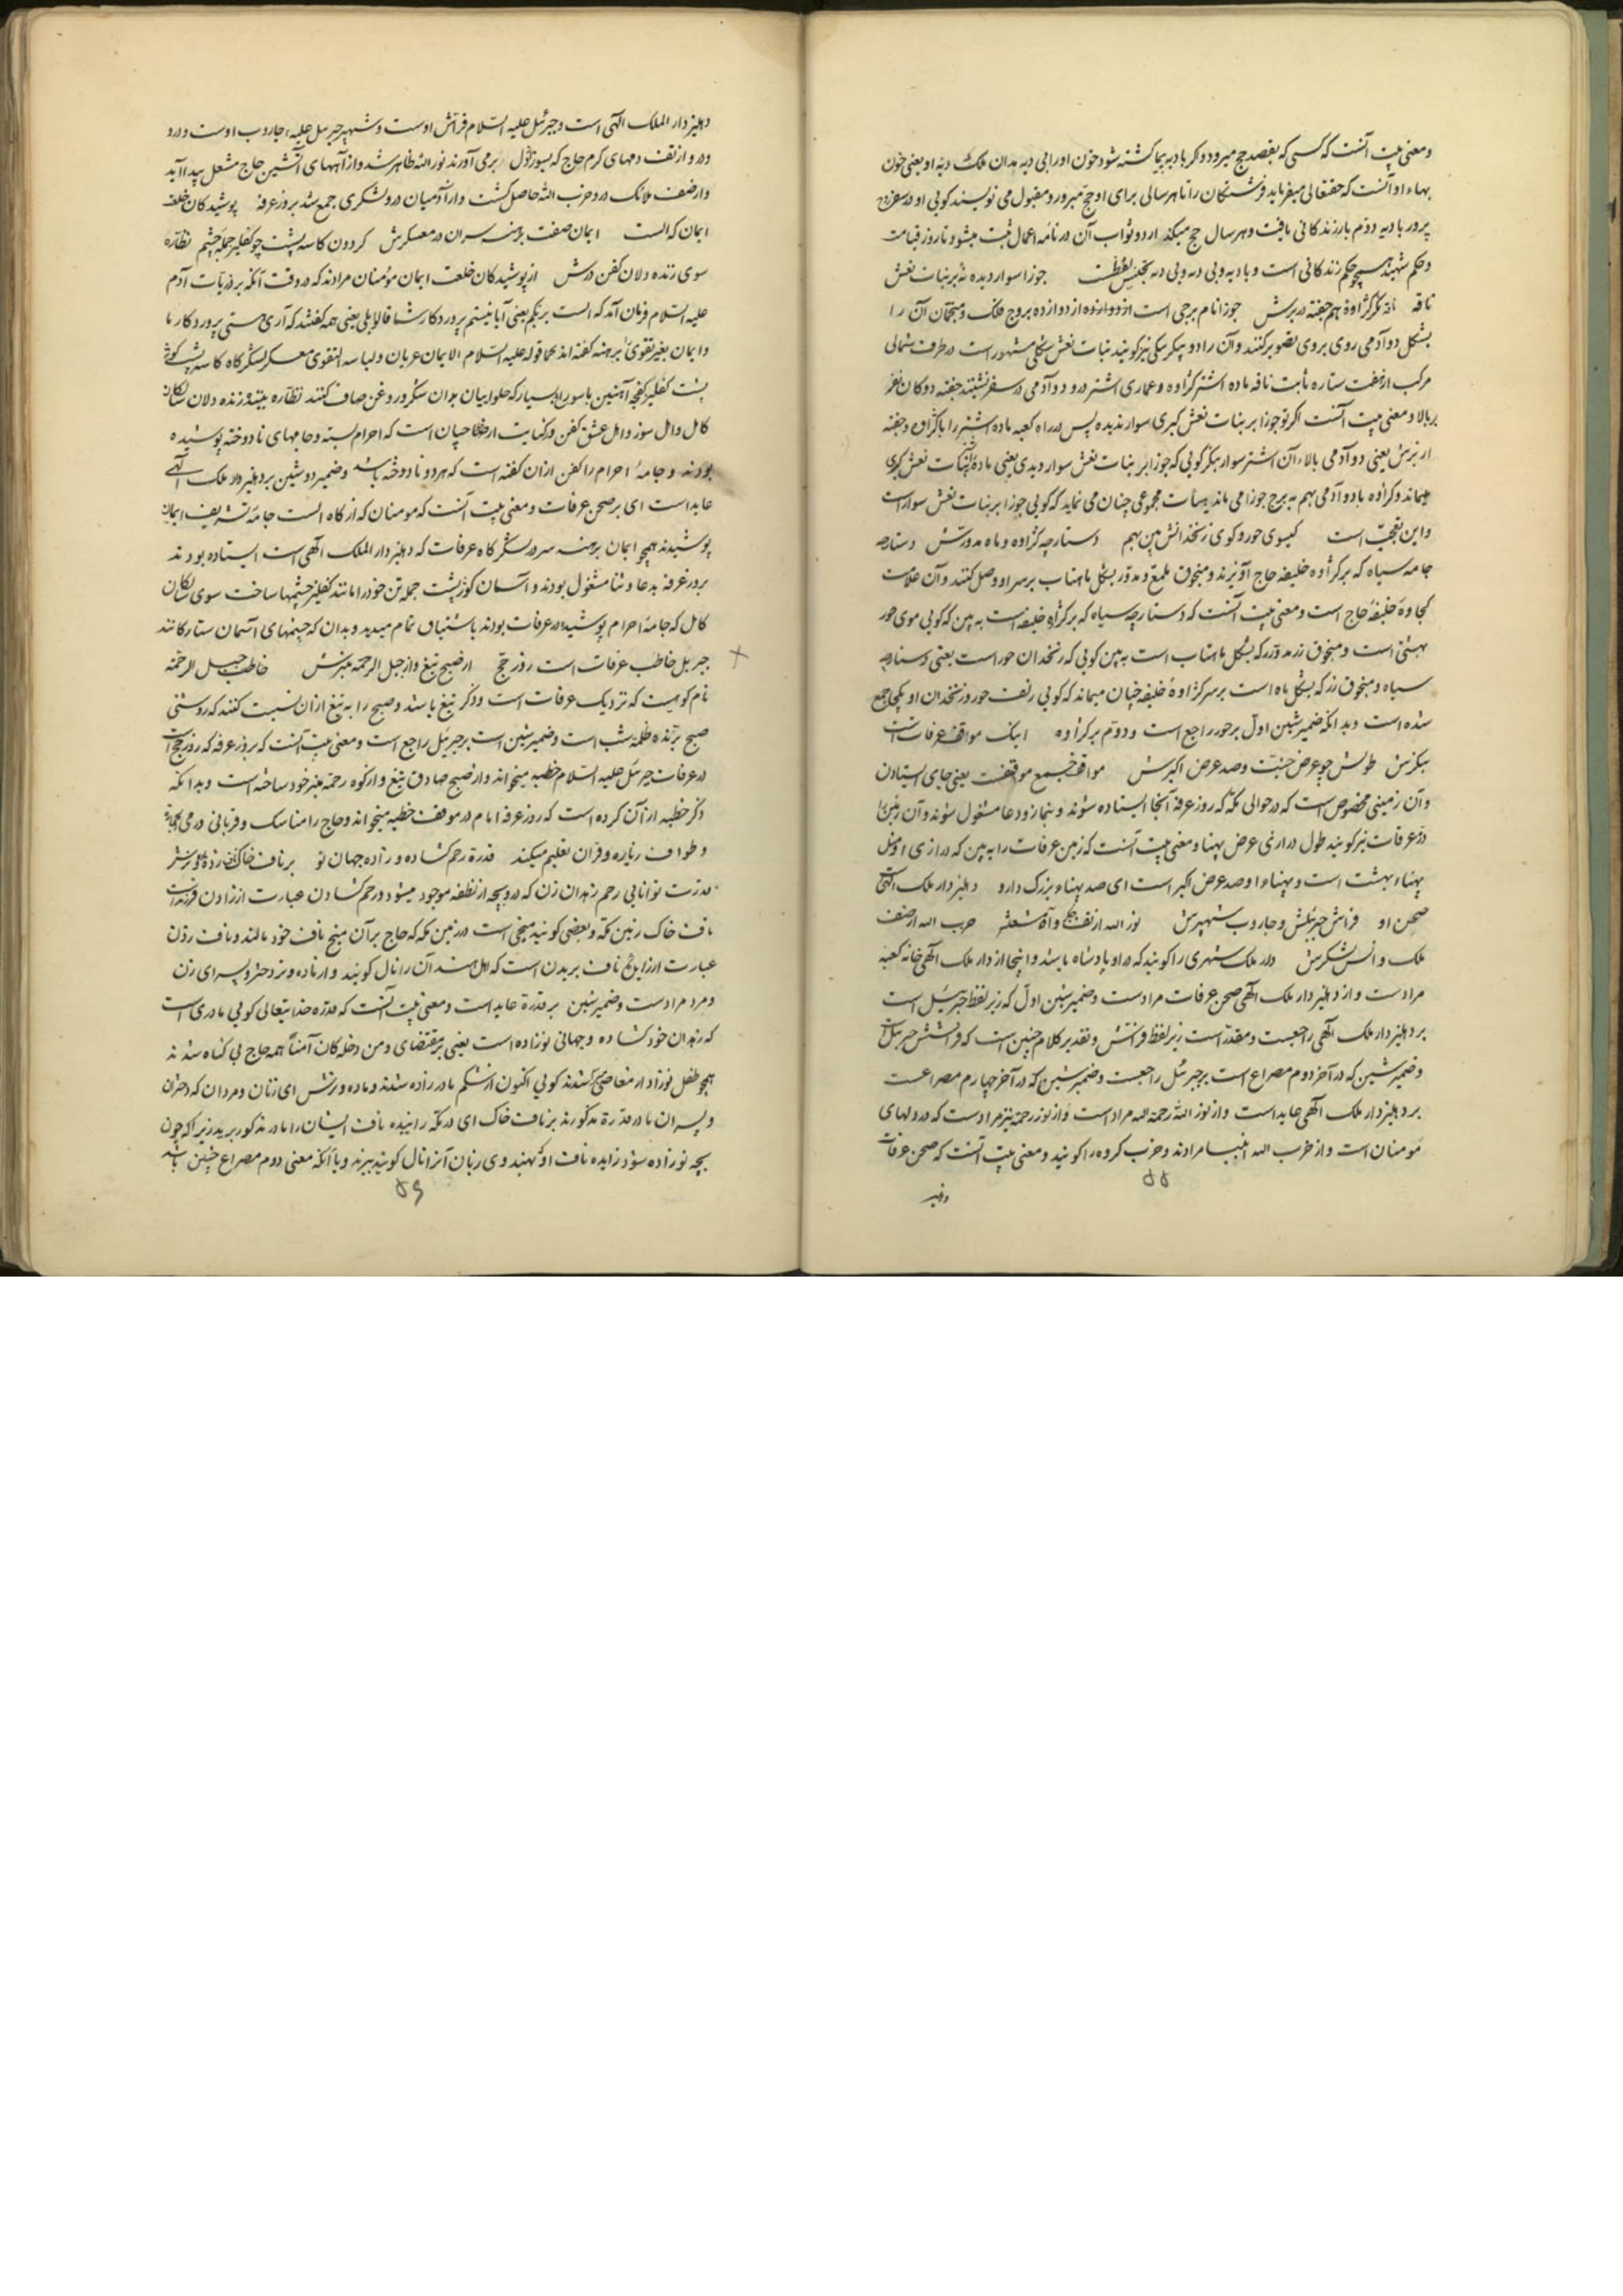 ومعنی بیت آنست که کسی که بقصد حج میرود و کر بادیه پیما کشته شود خون اورا بی دیه مدان ملک دیه او یعنی خون
بهاء او آنست که حقتعالی میفرماید فرشتکان را تا هر سالی برای او حج مبرور و مقبول می نویسند کویی او در سفر
پرور بادیه دوم بار زندکانی یافت و هر سال حج میکند ازو ثواب آن در نامه اعمال ثبت میشود تا روز قیامت
و حکم شهید همچو حکم زندکانی است و بادیه و بی دیه و بی دیه تجنیس لفظست جوزا سوار دیده نه بر بنات نعش
ناقه نکر کژاوه هم جفته در برش جوزا نام برجی است از دوازده بروج فلک و منجمان آن را
بشکل دو آدمی روی بروی تصویر کنند و آن را دو پیکر نیز کویند بنات نعش شکلی مشهور است در طرف شمالی
مرکب از هفت ستاره ثابت ناقه ماده اشتر کژاوه و عماری اشتر درو دو آدمی در سفر نشینند جفته دوکان
بر بالا و معنی بیت آنست اکر تو جوزا بر بنات نعش کبری سوار ندیده پس در راه کعبه ماده اشتر را با کژاوه و جفته
از برش یعنی دو آدمی بالاء آن اشتر سوار بنکر کویی که جوزا بر بنات نعش سوار دیدی یعنی ماده اشتر به بنات نعش کبری
میماند و کژاوه با دو آدمی بهم به برج جوزا می ماند بهیأت مجموعی چنان می نماید که کویی جوزا بر بنات نعش سوار است
و این تعجب است کیسوی حور و کوی زنخدانش بین بهم دستارچه کژاوه و ماه مدورش دستارچه
جامه سیاه که بر کژاوه خلیفه حاج آویزند و منجوق ملمع و مدور بشکل ماهتاب بر سر او وصل کنند و آن علامت
کجاوه خلیفه حاج است و معنی بیت آنست که دستارچه سیاه که بر کژاوه خلیفه است به بین که کویی موی حور
بهشتی است و منجوق زر مدور که بشکل ماهتاب است به بین کویی که زنخدان حور است یعنی دستارچه
سیاه و منجوق زر که بشکل ماه است بر سر کژاوه خلیفه چنان میماند که کویی زلف حور و زنخدان او یکجا جمع
شده است و بدانکه ضمیر شین اول بر حور راجع است و دوم بر کژاوه اینک مواقف عرفات است
بنکرش طولش چو عرض جنت و صد عرض اکبرش مواقف جمع موقفست یعنی جای استادن
و آن زمینی مخصوص است که در حوالی مکه که روز عرفه آنجا ایستاده شوند و بنماز و دعا مشغول شوند و آن زمین را
در عرفات نیز کویند طول درازی عرض پهنا و معنی بیت آنست که زمین عرفات را به بین که درازی او مثل
پهناء بهشت است و پهناء او صد عرض اکبر است ای صد پهناء بزرک دارو دهلیز دار ملک الهی
صحن او فراش جبرئیلش و جاروب شهپرش نور الله از تف و آه مشعله حزب الله از صف
ملک و انس لشکرش دار ملک شهری را کویند که در او پادشاه باشد و اینجا از دار ملک الهی خانه کعبه
مرادست و از دهلیز دار ملک الهی صحن عرفات مرادست و ضمیر شین اول که زیر لفظ جبرئیل است
بر دهلیز دار ملک الهی راجعست و مقدر است زیر لفظ فراش و تقدیر کلام چنین است که فراشش جبرئیل است
و ضمیر شین که در آخر دوم مصراع است بر جبرئیل راجعست و ضمیر شین که در آخر چهارم مصراعست
بر دهلیز دار ملک الهی عاید است و از نور الله رحمه الله مراد است و از نور رحمة نیز مرادست که در دلهای
مؤمنان است و از حزب الله انبیا مرادند و حزب کروه را کویند و معنی بیت آنست که صحن عرفات
۵۵
دهلیز
دهلیز دار الملک الهی است و جبرئیل علیه السلام فراش اوست و شهپر جبرئیل علیه جاروب اوست و درو
درو از تف دمهای کرم حاج که بسوز دل برمی آورند نور الله ظاهر شد و از آههای آتشین حاج مشعل پیدا آید
و از صف ملائک درو حزب الله حاصل کشت و از آدمیان درو لشکری جمع شد بروز عرفه پوشیدکان خلعت
ایمان که الست ایمان صفت برهنه سران در معسکرش کردون کاسه پشت چو کفلیز جمله چشم نظاره
سوی زنده دلان کفن درش از پوشیدکان خلعت ایمان مؤمنان مرادند که در وقت آنکه بر ذریات آدم
علیه السلام فرمان آمد که الست بربکم یعنی آیا نیستم پروردکار شما قالوا بلی یعنی همه کفتند که آری هستی پروردکار ما
و ایمان بغیر تقوی را برهنه کفته اند کما قوله علیه السلام الایمان عریان و لباسه التقوی معسکر لشکرکاه کاسه پشت کوژ
پشت کفلیز کفچه آهنین با سوراخ بسیار که حلواییان بدان شکر و روغن صاف کنند نظاره بیننده زنده دلان سالکان
کامل و اهل سوز و اهل عشق کفن در کنایت از حاجیان است که احرام بسته و جامهای نادوخته پوشیده
بودند و جامه احرام را کفن از ان کفته است که هر دو نادوخته باشد و ضمیر دو شین بر دهلیز دار ملک الهی
عاید است ای بر صحن عرفات و معنی بیت آنست که مومنان که از کاه الست جامه تشریف ایمان
پوشیدند همچو ایمان برهنه سر در لشکرکاه عرفات که دهلیز دار الملک الهی است ایستاده بودند
بروز عرفه بدعا و ثنا مشغول بودند و آسمان کوژ پشت جمله تن خود را مانند کفلیز چشمها ساخت سوی سالکان
کامل که جامه احرام پوشیده در عرفات بودند باشتیاق تمام میدید و بدان که چشمهای آسمان ستارکانند
جبریل خاطب عرفات است روز حج از صبح تیغ و از جبل الرحمه منبرش خاطب جبل الرحمه
نام کوهیست که نزدیک عرفات است و ذکر تیغ باشد و صبح را به تیغ از ان نسبت کنند که روشنی
صبح برنده ظلمه شب است و ضمیر شین است بر جبرئیل راجع است و معنی بیت آنست که بروز عرفه که روز حج است
در عرفات جبرئیل علیه السلام خطبه میخواند و از صبح صادق تیغ و از کوه رحمه منبر خود ساخته است و بدانکه
ذکر خطبه از آن کرده است که روز عرفه امام در موقف خطبه میخواند و حاج را مناسک و قربانی و رمی جماره
و طواف زیاره و قران تعلیم میکند قدرة رحم کشاده و زاده جهان نو بر ناف خاک
قدرت توانایی رحم زهدان زن که درو بچه از نطفه موجود میشود و رحم کشادن عبارت از زادن فرزند است
ناف خاک زمین مکه و بعضی کویند میخی است در زمین مکه که حاج بر آن میخ ناف خود مالند و ناف زدن
عبارت از زایدن ناف بریدن است که اهل هند آن را نال کویند و از ماده و نر دختر و پسر ای زن
و مرد مرادست و ضمیر شین بر قدرة عاید است و معنی بیت آنست که قدرة خدایتعالی کویی مادری است
که زهدان خود کشاده و جهانی نو زاده است یعنی بمقتضای و من دخله کان آمنا همه حاج بی کناه شدند
همچو طفل نوزاد از معاصی کویی اکنون از شکم مادر زاده شدند و ماده و نرش ای زنان و مردان که دختران
و پسران مادر قدرة مذکورند بر ناف خاک ای در مکه زاییده ناف ایشان را مادر مذکور برید زیرا که چون
بچه نوزاده شود زاینده ناف او بهندوی زبان آنرا نال کویند ببرند و یا آنکه معنی دوم مصراع چنین باشد
۵۶